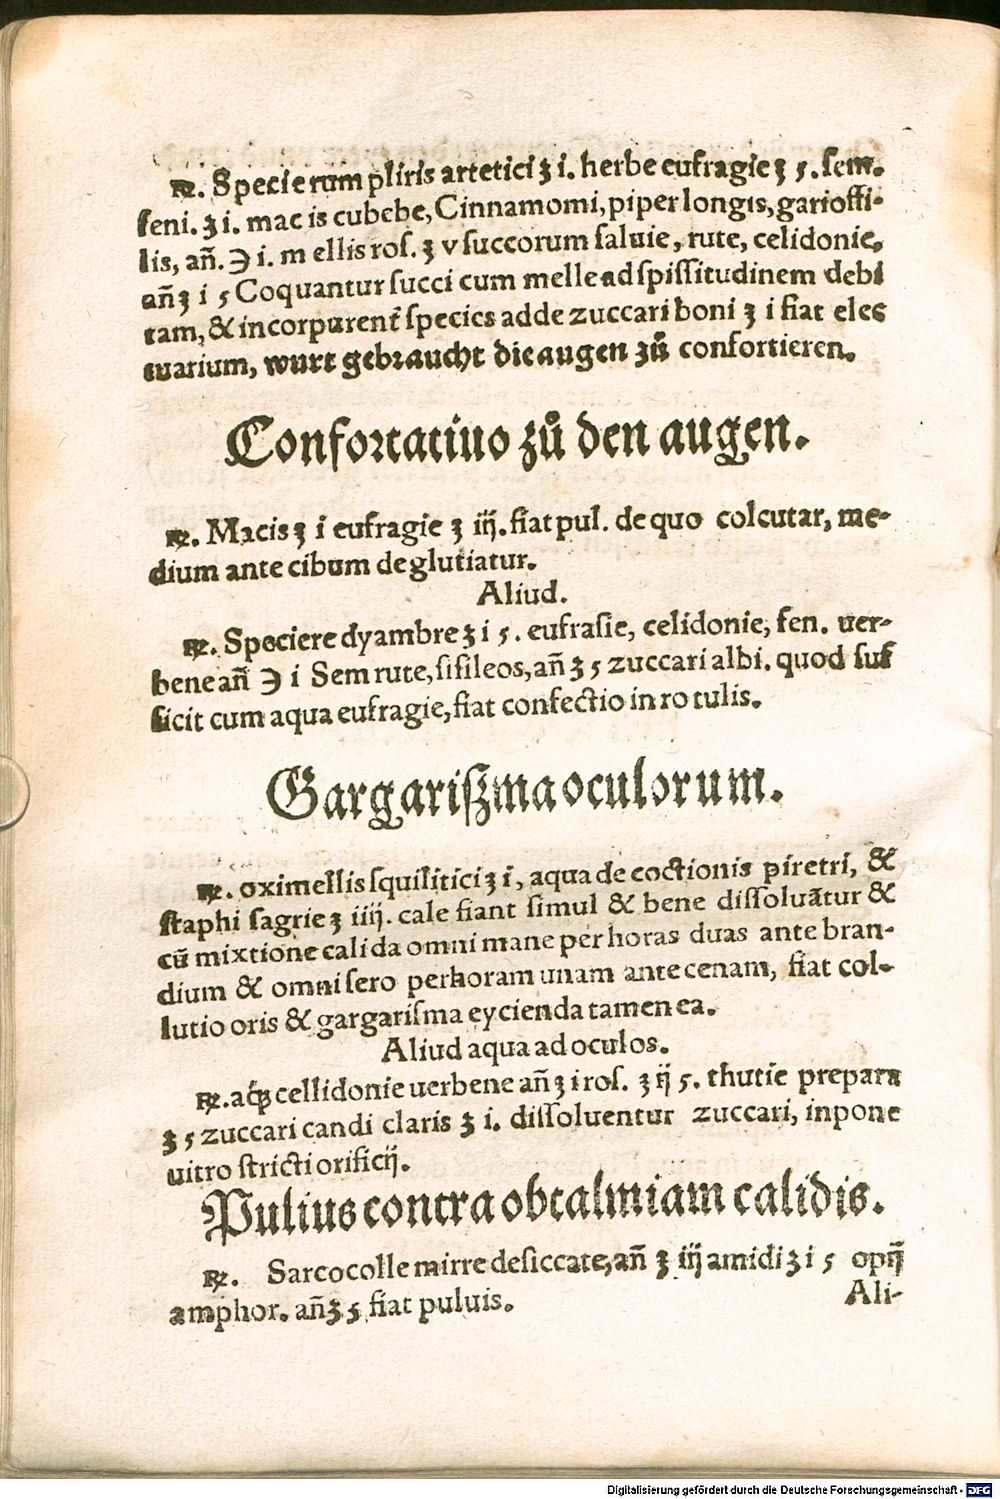 ℞. Specierum pliris artetici ʒ i. herbe eufragie ʒ 5. sem.
seni. ʒ i. macis cubebe, Cinnamomi, piper longis, garioffi-
lis, an̄. ℈ i. mellis ros. ʒ v succorum saluie, rute, celidonie,
an̄ ʒ i 5 Coquantur succi cum melle ad spissitudinem debi
tam, & incorpurent̄ species adde zuccari boni ʒ i fiat elec
tuarium, wurt gebraucht die augen zů confortieren.
Confortatiuo zů den augen.
℞. Macis ʒ i eufragie ʒ iij. fiat pul. de quo colcutar, me-
dium ante cibum deglutiatur.
Aliud.
℞. Speciere dyambre ʒ i 5. eufrasie, celidonie, fen. uer-
bene an̄ ℈ i Sem rute, sisileos, an̄ ʒ 5 zuccari albi. quod suf
ficit cum aqua eufragie, fiat confectio in rotulis.
Gargariszma oculorum.
℞. oximellis squilitici ʒ i, aqua decoctionis piretri, &
staphisagrie ʒ iiij. cale fiant simul & bene dissoluātur &
cū mixtione calida omni mane per horas duas ante bran-
dium & omni sero per horam unam ante cenam, fiat col-
lutio oris & gargarisma eycienda tamen ea.
Aliud aqua ad oculos.
℞. aq̄ȝ cellidonie uerbene an̄ ʒ i ros. ʒ ij 5. thutie prepara
ʒ 5 zuccari candi claris ʒ i. dissoluentur zuccari, inpone
uitro stricti orificij.
Pulius contra obtalmiam calidis.
℞. Sarcocolle mirre desiccate, an̄ ʒ iij amidi ʒ i 5 opij
amphor. an̄ ʒ 5 fiat puluis.
Ali-
Digitalisierung gefördert durch die Deutsche Forschungsgemeinschaft - DFG